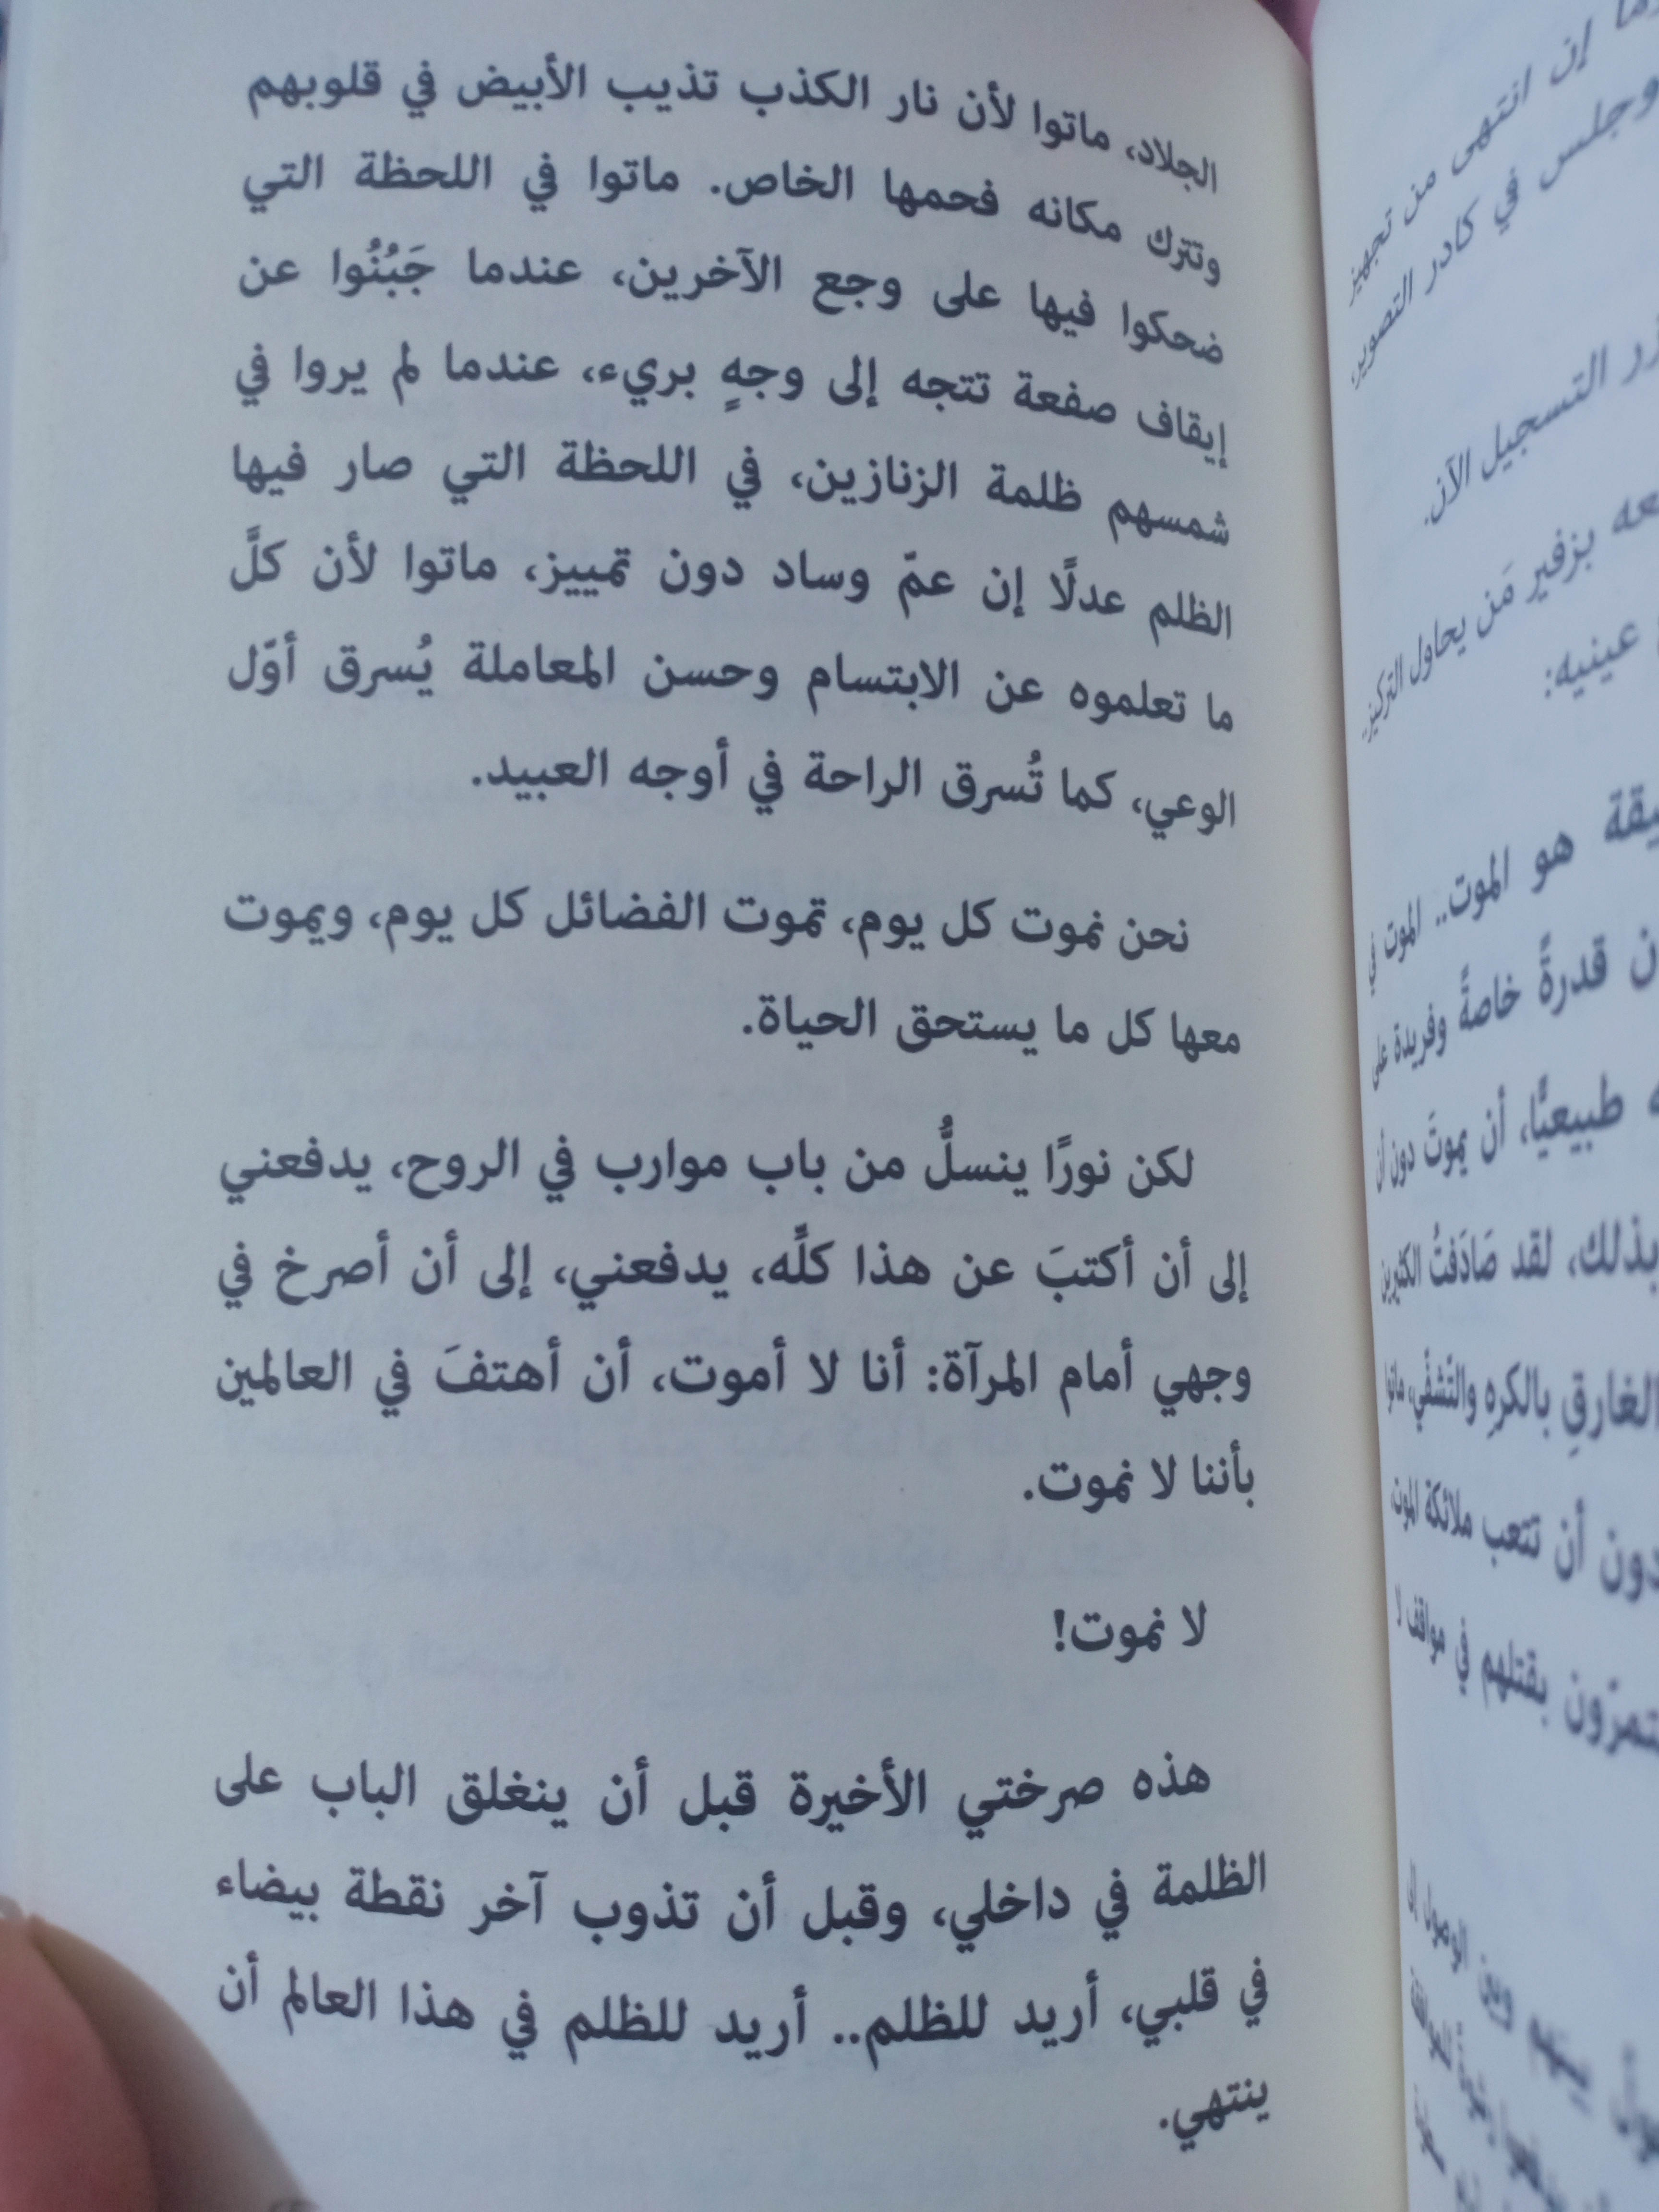 ما إن انتهى من تجهيز
وجلس في كادر التصوير،
زر التسجيل الآن.
بزفيرِ مَن يحاول التركيز
عينيه:
هو الموت.. الموت في
قدرةً خاصةً وفريدة على
طبيعيًّا، أن يموتَ دون أن
بذلك، لقد صَادَفتُ الكثيرين
الغارقِ بالكرهِ والتشفّي، ماتوا
دون أن تتعب ملائكة الموت
بقتلهم في مواقف لا
وبين الوصول إلى
الجلاد، ماتوا لأن نار الكذب تذيب الأبيض في قلوبهم
وتترك مكانه فحمها الخاص. ماتوا في اللحظة التي
ضحكوا فيها على وجع الآخرين، عندما جَبُنُوا عن
إيقاف صفعة تتجه إلى وجهٍ بريء، عندما لم يروا في
شمسهم ظلمة الزنازين، في اللحظة التي صار فيها
الظلم عدلًا إن عمّ وساد دون تمييز، ماتوا لأن كلَّ
ما تعلموه عن الابتسام وحسن المعاملة يُسرق أوّل
الوعي، كما تُسرق الراحة في أوجه العبيد.
نحن نموت كل يوم، تموت الفضائل كل يوم، ويموت
معها كل ما يستحق الحياة.
لكن نورًا ينسلُّ من باب موارب في الروح، يدفعني
إلى أن أكتبَ عن هذا كلِّه، يدفعني، إلى أن أصرخ في
وجهي أمام المرآة: أنا لا أموت، أن أهتفَ في العالمين
بأننا لا نموت.
لا نموت!
هذه صرختي الأخيرة قبل أن ينغلق الباب على
الظلمة في داخلي، وقبل أن تذوب آخر نقطة بيضاء
في قلبي، أريد للظلم.. أريد للظلم في هذا العالم أن
ينتهي.